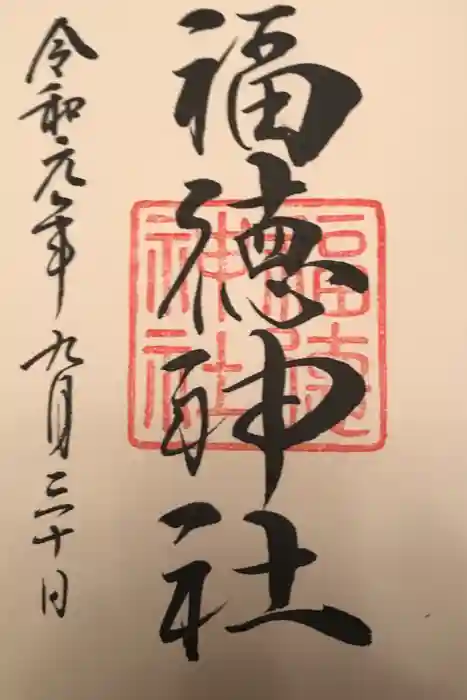 福徳神社
福徳神社
令和元年九月三十日